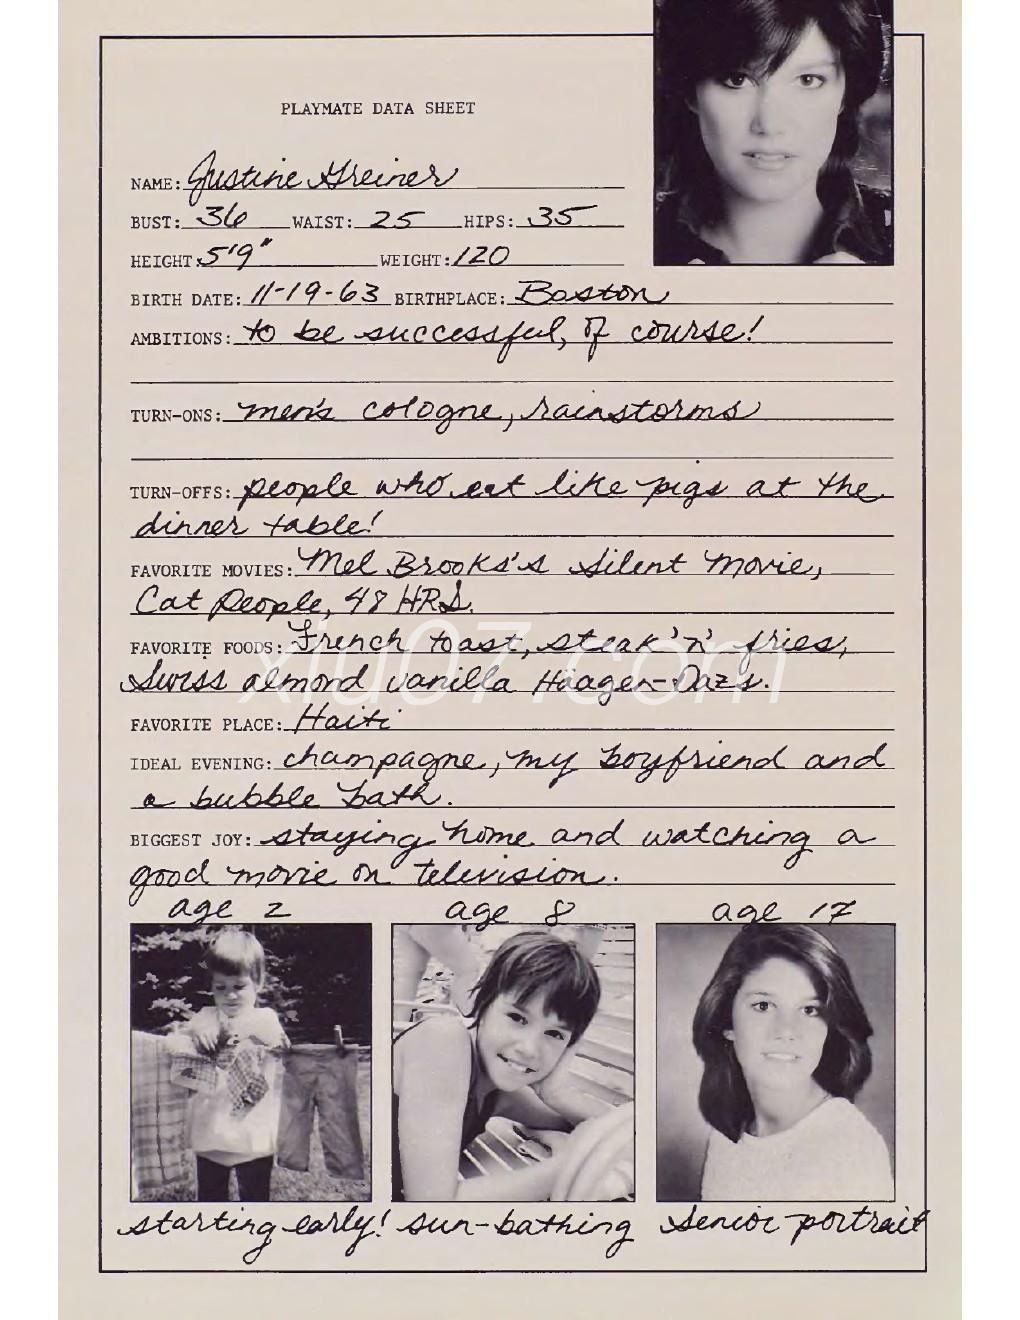 PLAYMATE DATA SHEET
NAME: Justine Greiner
BUST: 36 WAIST: 25 HIPS: 35
HEIGHT: 5'9" WEIGHT: 120
BIRTH DATE: 11-19-63 BIRTHPLACE: Boston
AMBITIONS: to be successful, of course!
TURN-ONS: men's cologne, rainstorms
TURN-OFFS: people who eat like pigs at the
dinner table!
FAVORITE MOVIES: Mel Brooks's Silent Movie,
Cat People, 48 HRS.
FAVORITE FOODS: French toast, steak 'n' fries,
Swiss almond vanilla Häagen-Dazs.
xiu07.com
FAVORITE PLACE: Haiti
IDEAL EVENING: champagne, my boyfriend and
a bubble bath.
BIGGEST JOY: staying home and watching a
good movie on television.
age 2 age 8 age 17
starting early! sun-bathing senior portrait